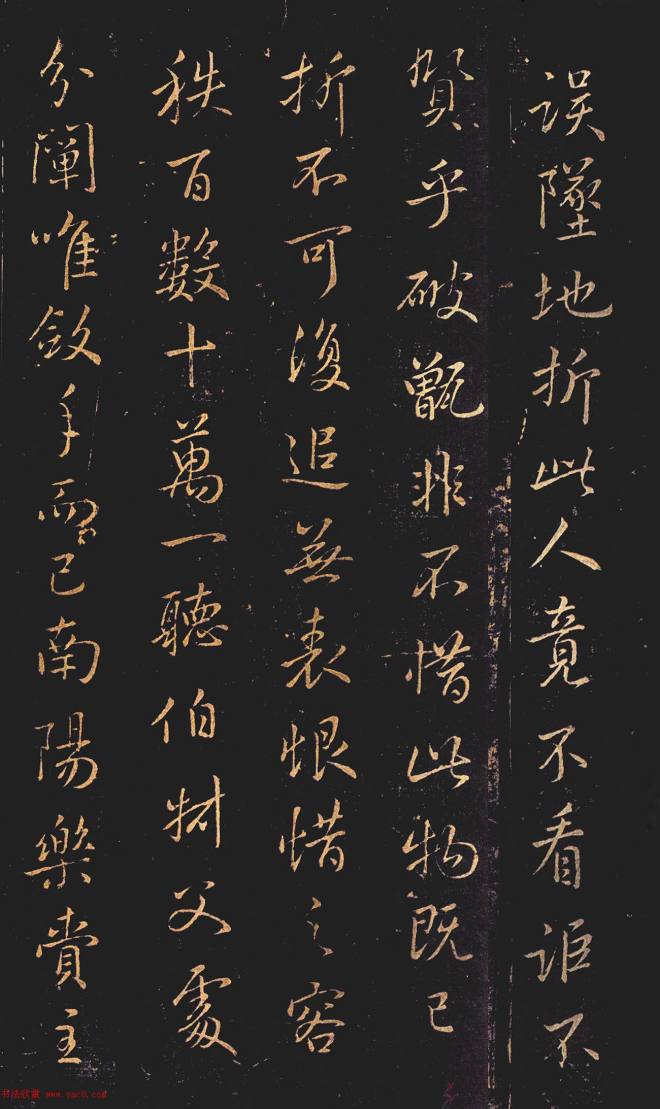 誤墜地折此人竟不看詎不
賢乎破甑非不惜此物既已
折不可復追無表恨惜之容
秩百數十萬一聽伯材父處
分闡唯斂手而已南陽樂賞主
书法欣赏 www.yac8.com